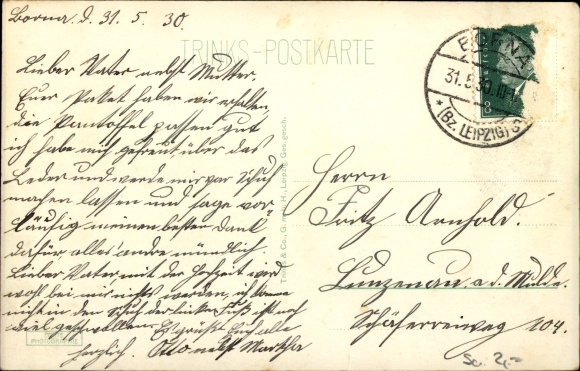 Borna. d. 31. 5. 30.
TRINKS-POSTKARTE
Lieber Vater nebst Mutter.
Euer Paket haben wir erhalten,
die Pantoffel passen gut
ich habe mich gefreut über das
Leder und werde mir gar Schuh
machen lassen und sage vor-
läufig meinen besten Dank
dafür, alles andre mündlich.
Lieber Vater mit der Hochzeit wird
wohl bei mir nichts werden, ich komme
nicht in den Schuh der linke Fuß ist noch
viel geschwollen. Es grüßt Euch alle
herzlich. Otto nebst Martha
Trinks & Co., G. m. b. H., Leipzig. Ges. gesch.
BORNA
31.5.30.
* (BZ. LEIPZIG)
8
Herrn
Fritz Arnhold.
Lunzenau a. d. Mulde.
Schäfereiweg 104.